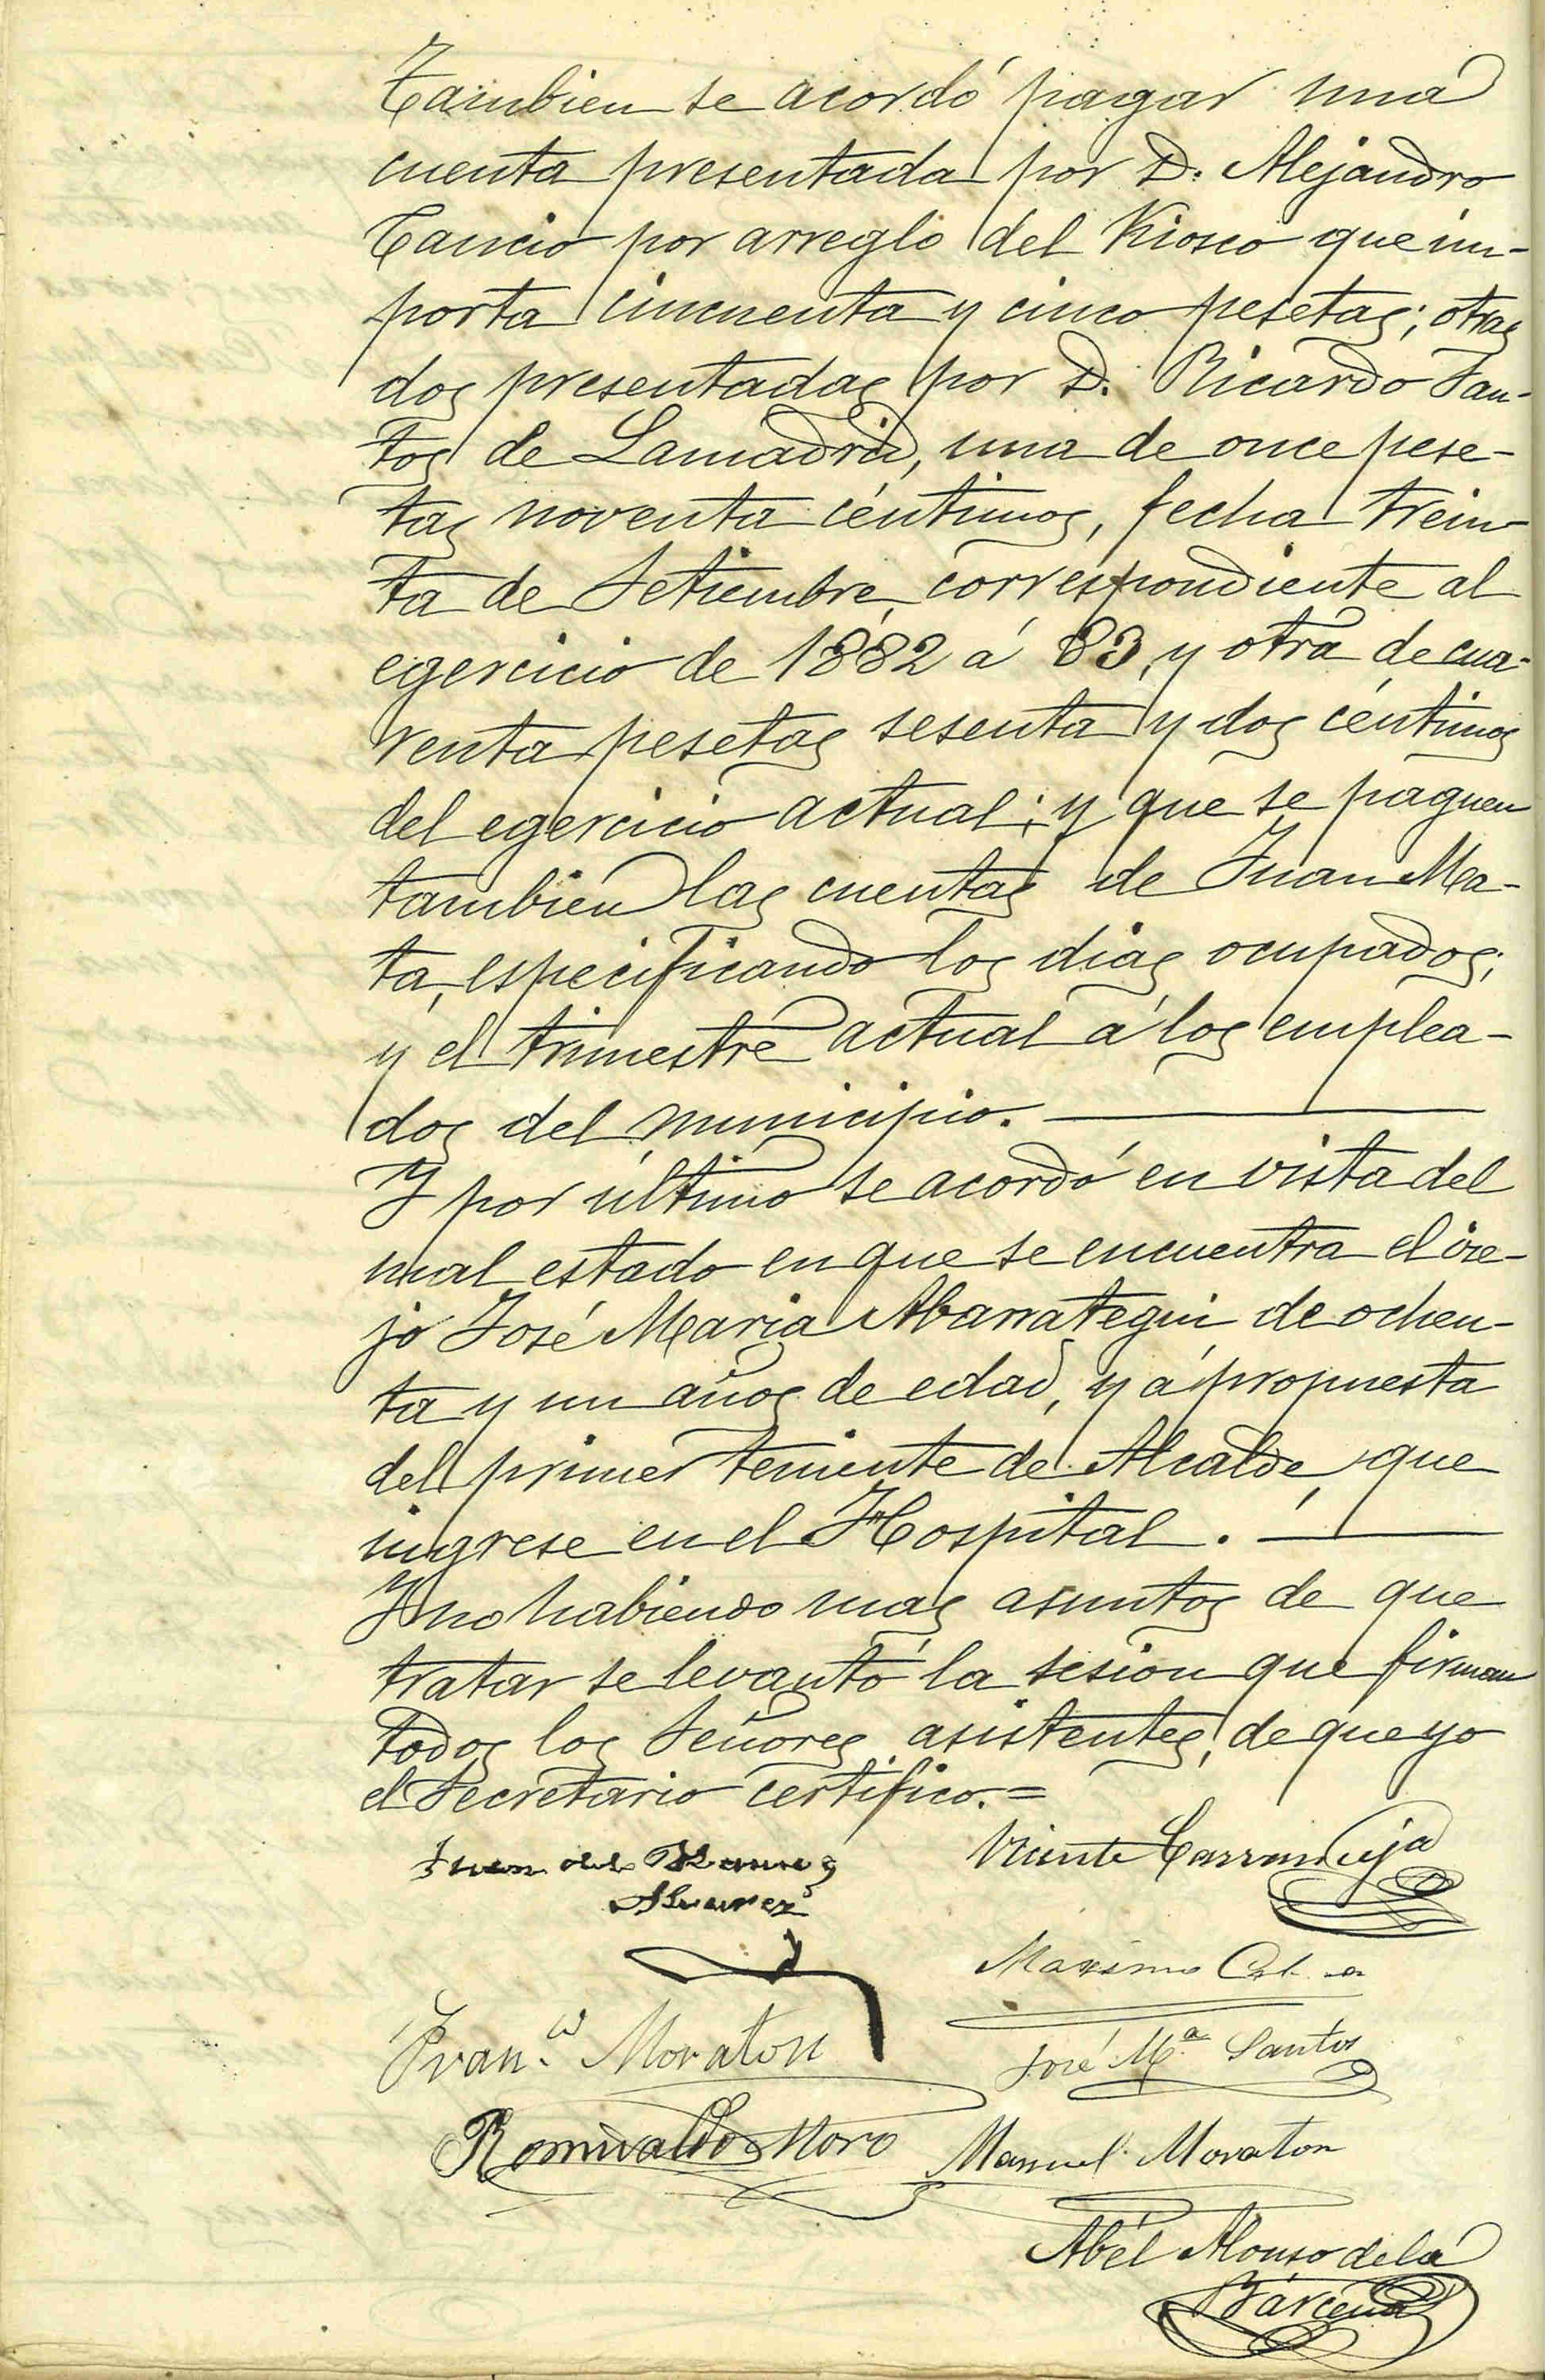 Tambien se acordó pagar una
cuenta presentada por D. Alejandro
Cancio por arreglo del Kiosco que im-
porta cincuenta y cinco pesetas; otras
dos presentadas por D. Ricardo San-
tos de Lamadrid, una de once pese-
tas noventa céntimos, fecha trein-
ta de Setiembre, correspondiente al
egercicio de 1882 á 83, y otra de cua-
renta pesetas sesenta y dos céntimos
del egercicio actual; y que se paguen
tambien las cuentas de Juan Ma-
ta, especificando los dias ocupados;
y el trimestre actual á los emplea-
dos del municipio.
Y por último se acordó en vista del
mal estado en que se encuentra el vie-
jo José Maria Abarrategui de ochen-
ta y un años de edad, y á propuesta
del primer teniente de Alcalde, que
ingrese en el Hospital.
Y no habiendo mas asuntos de que
tratar se levantó la sesion que firman
todos los Señores asistentes, de que yo
el Secretario certifico.=
Juan de
Vicente Carranceja
Alvarez
Maximo
Fran.co Moraton
José M.a Santos
Romualdo Moro
Manuel Moraton
Abél Alonso de la
Bárcena